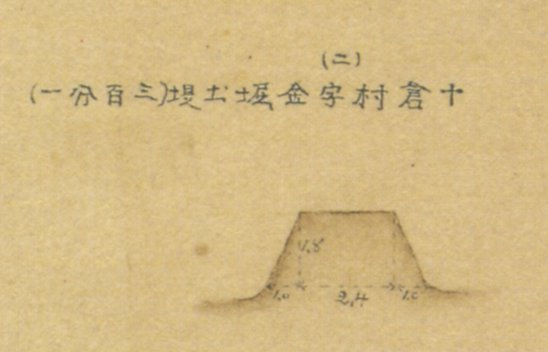 (二)
十倉村字金堀土堤(三百分一)
1.8
1.0 2.4 1.0